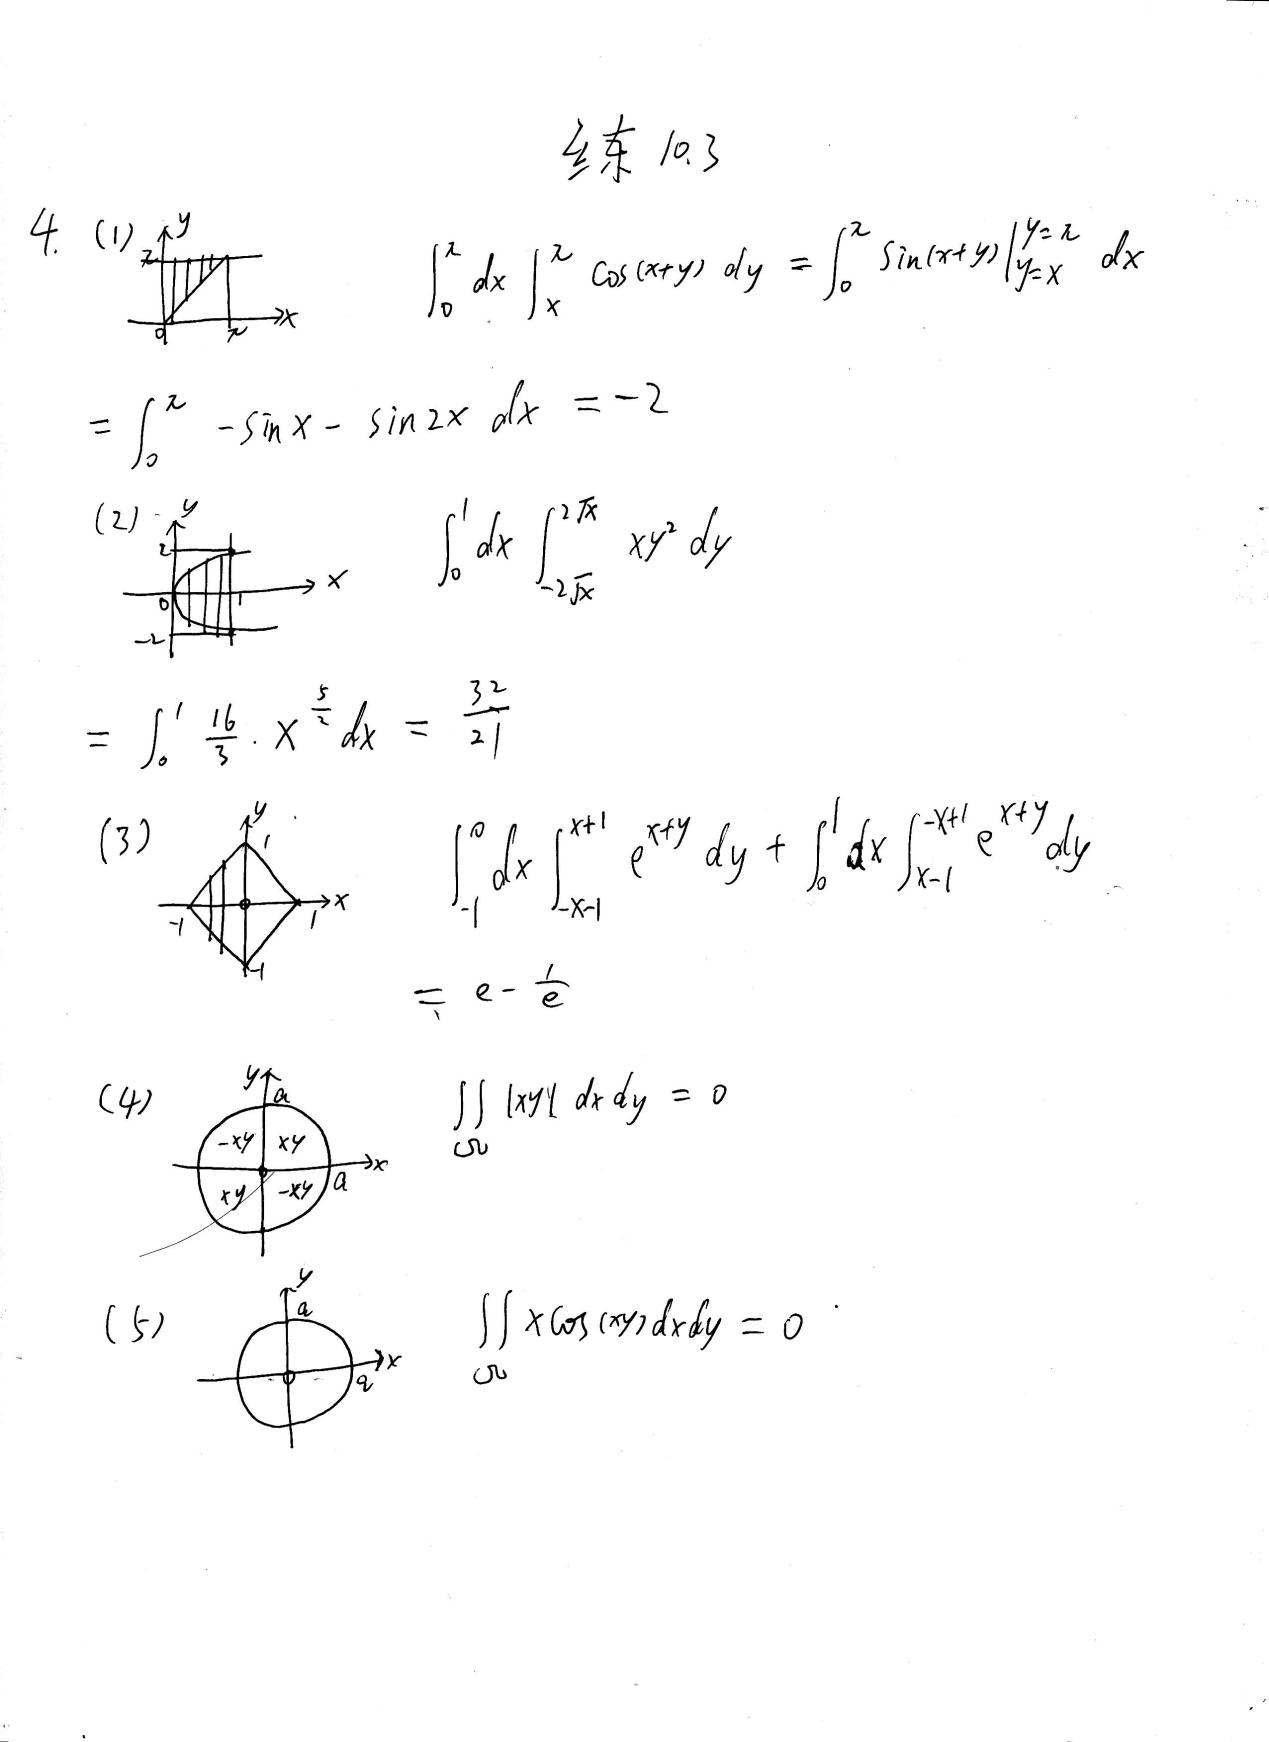 练 10.3
4. (1) y π 0 π x ∫₀^π dx ∫ₓ^π cos(x+y) dy = ∫₀^π sin(x+y)|_{y=x}^{y=π} dx
= ∫₀^π -sinx - sin2x dx = -2
(2) y 2 0 1 x -2 ∫₀¹ dx ∫_{-2√x}^{2√x} xy² dy
= ∫₀¹ 16/3 · x^{5/2} dx = 32/21
(3) y 1 -1 1 x -1 ∫_{-1}^0 dx ∫_{-x-1}^{x+1} e^{x+y} dy + ∫₀¹ dx ∫_{x-1}^{-x+1} e^{x+y} dy
= e - 1/e
(4) y a -xy xy xy -xy a x ∬ |xy| dxdy = 0
(5) y a a x ∬ x cos(xy) dxdy = 0